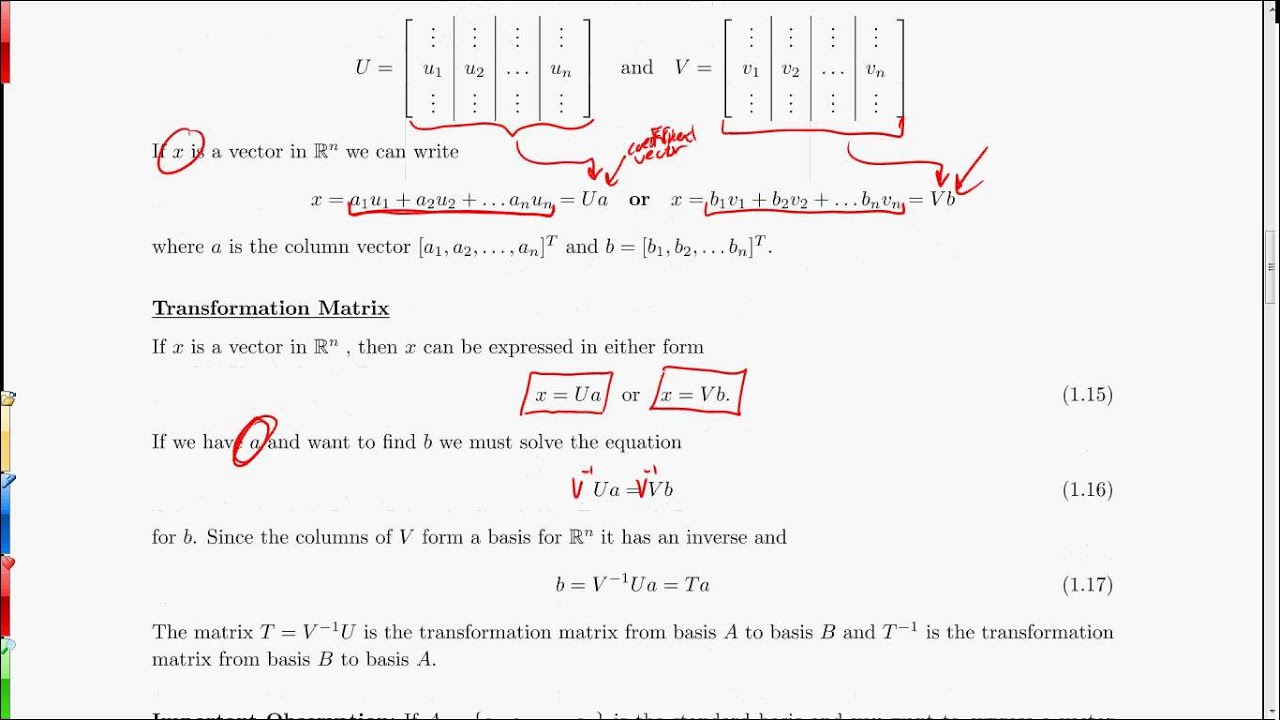 U = [ ⋮ | ⋮ | ⋮ | ⋮ ; u₁ | u₂ | … | uₙ ; ⋮ | ⋮ | ⋮ | ⋮ ] and V = [ ⋮ | ⋮ | ⋮ | ⋮ ; v₁ | v₂ | … | vₙ ; ⋮ | ⋮ | ⋮ | ⋮ ]
vector
If x is a vector in ℝⁿ we can write
x = a₁u₁ + a₂u₂ + … aₙuₙ = Ua or x = b₁v₁ + b₂v₂ + … bₙvₙ = Vb
where a is the column vector [a₁, a₂, …, aₙ]ᵀ and b = [b₁, b₂, … bₙ]ᵀ.
Transformation Matrix
If x is a vector in ℝⁿ , then x can be expressed in either form
x = Ua or x = Vb. (1.15)
If we have a and want to find b we must solve the equation
V⁻¹ Ua = V⁻¹ Vb (1.16)
for b. Since the columns of V form a basis for ℝⁿ it has an inverse and
b = V⁻¹Ua = Ta (1.17)
The matrix T = V⁻¹U is the transformation matrix from basis A to basis B and T⁻¹ is the transformation
matrix from basis B to basis A.
Important Observation: If A = is the standard basis and you want to express a vector